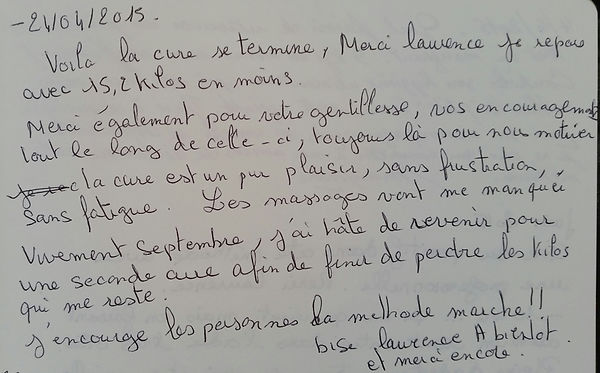 - 24/04/2015.
Voila la cure se termine, Merci laurence je repars
avec 15,2 kilos en moins.
Merci également pour votre gentillesse, vos encouragements
tout le long de celle-ci, toujours là pour nous motiver
la cure est un pur plaisir, sans frustration,
sans fatigue. Les massages vont me manquer
Vivement Septembre, j'ai hâte de revenir pour
une seconde cure afin de finir de perdre les kilos
qui me reste.
j'encourge les personnes la methode marche!!
bise laurence A bientot.
et merci encore.